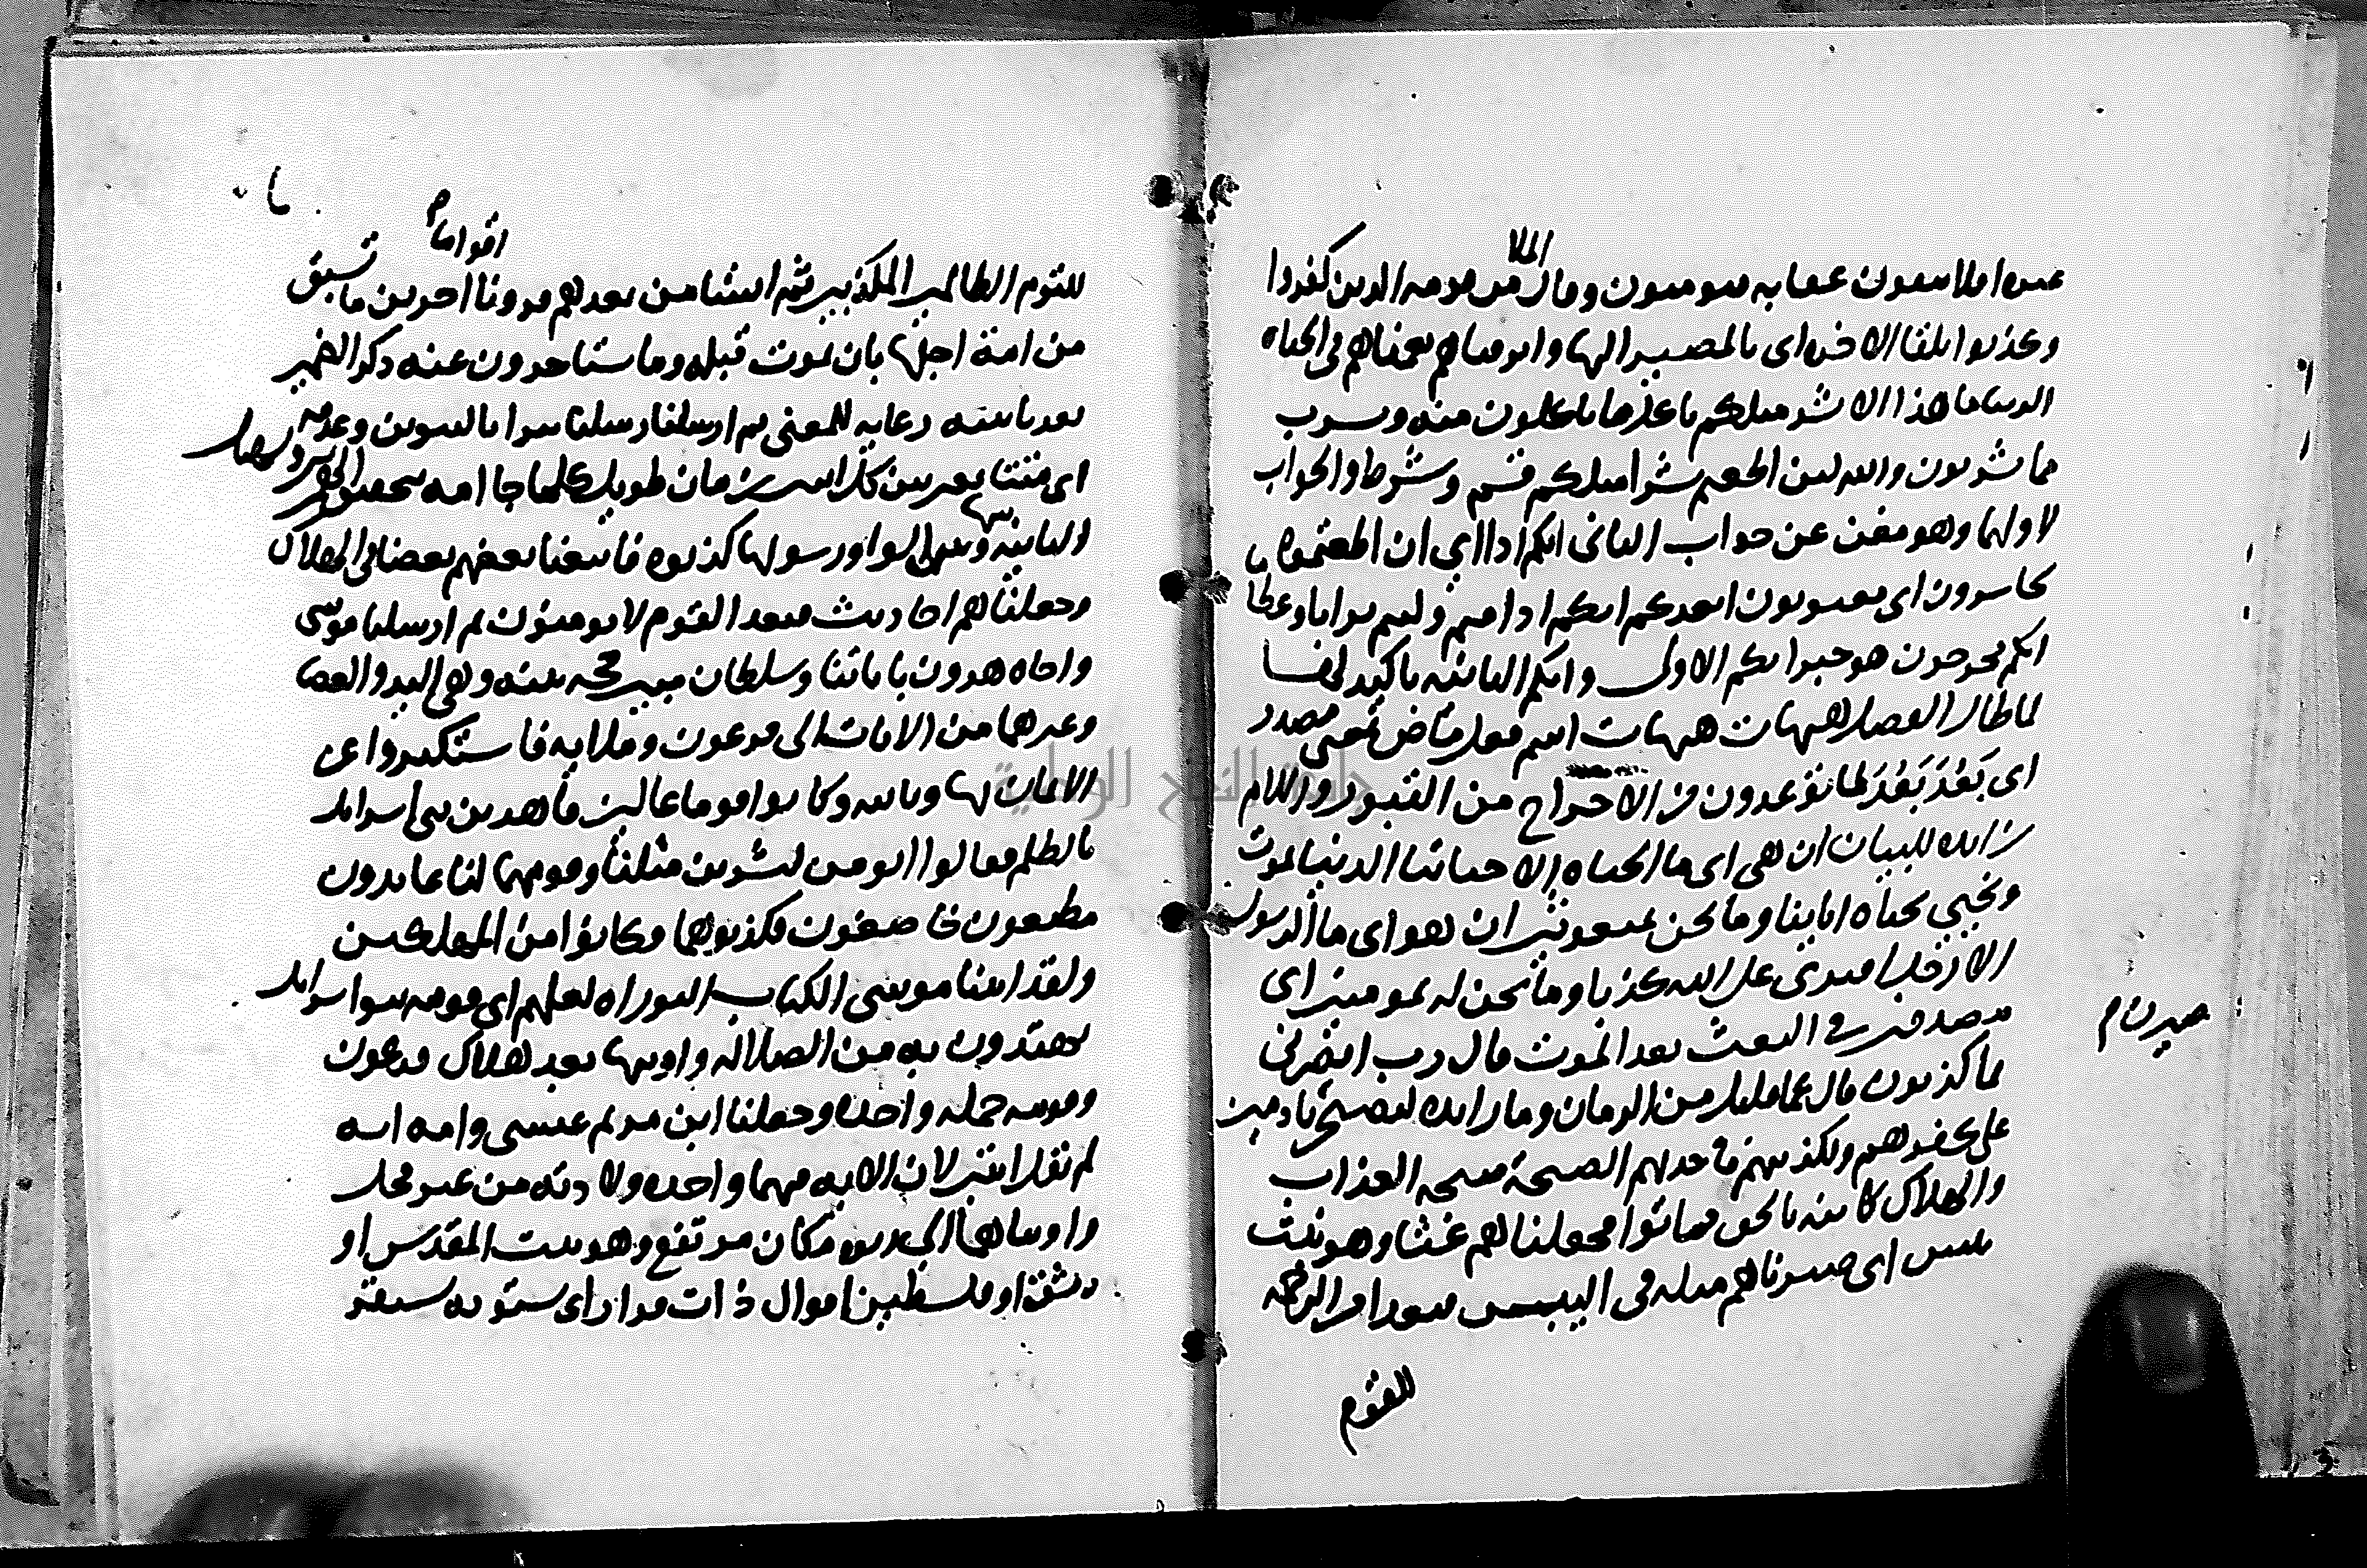 غيره افلا تتقون عقابه فتؤمنون وقال الملا من قومه الذين كفروا
وكذبوا بلقا الاخره اى بالمصير اليها واترفناهم نعمناهم فى الحياه
الدنيا ما هذا الا بشر مثلكم ياكل مما تاكلون منه ويشرب
مما تشربون والله لين اطعتم بشرا مثلكم فيه قسم وشرط والجواب
لاولهما وهو مغن عن جواب الثانى انكم اذا اى ان اطعتموه
لخاسرون اى مغبونون ايعدكم انكم اذا متم وكنتم ترابا وعظاما
انكم مخرجون هو خبر انكم الاولى وانكم الثانيه تاكيد لها
لما طال الفصل هيهات هيهات اسم فعل ماض بمعنى مصدر
اى بَعُدَ بَعُدَ لما توعدون من الاخراج من القبور واللام
زايده للبيان ان هى اى ما الحياه الا حياتنا الدنيا نموت
ونحيى بحياه ابناينا وما نحن بمبعوثين ان هو اى ما الرسول
الا رجل افترى على الله كذبا وما نحن له بمومنين اى
مصدقين فى البعث بعد الموت قال رب انصرنى
بما كذبون قال عما قليل من الزمان وما زايده ليصبحن نادمين
يصيرن م
على كفرهم وتكذيبهم فاخذتهم الصيحة صيحه العذاب
والهلاك كاينه بالحق فماتوا فجعلناهم غثا وهو نبت
يبس اى صيرناهم مثله فى اليبس فبعدا من الرحمه
للقوم
للقوم الظالمين المكذبين ثم انشانا من بعدهم قرونا اقواما م اخرين ما تسبق
من امة اجلها بان تموت قبله وما يستاخرون عنه ذكر الضمير
بعد تانيثه رعايه للمعنى ثم ارسلنا رسلنا تترا بالتنوين وعدمه
اى متتابعين بين كل اثنين زمان طويل كلما جا امه بتحقيق الهمزتين وتسهيل
الثانيه بينها وبين الواو رسولها كذبوه فاتبعنا بعضهم بعضا فى الهلاك
وجعلناهم احاديث فبعدا لقوم لا يومنون ثم ارسلنا موسى
واخاه هرون باياتنا وسلطان مبين حجه بينه وهى اليد والعصا
وغيرهما من الايات الى فرعون وملايه فاستكبروا عن
الايمان بها وبالله وكانوا قوما عالين قاهرين بنى اسرايل
بالظلم فقالوا انومن لبشرين مثلنا وقومهما لنا عابدون
مطيعون خاضعون فكذبوهما وكانوا من المهلكين
ولقد اتينا موسى الكتاب التوراه لعلهم اى قومه بنوا اسرايل
يهتدون به من الضلاله واوتيها بعد هلاك فرعون
وقومه جمله واحده وجعلنا ابن مريم عيسى وامه ايه
لم يقل ايتين لان الايه فيهما واحده ولادته من غير فحل
واويناهما الى ربوه مكان مرتفع وهو بيت المقدس او
دمشق او فلسطين اقوال ذات قرار اى مستويه يستقر